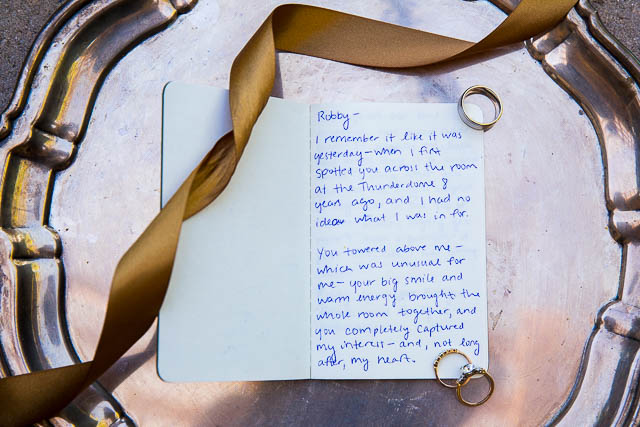 Robby-
I remember it like it was
yesterday-when I first
spotted you across the room
at the Thunderdome 8
years ago, and I had no
idea what I was in for.
You towered above me-
which was unusual for
me-your big smile and
warm energy brought the
whole room together, and
you completely captured
my interest-and, not long
after, my heart.